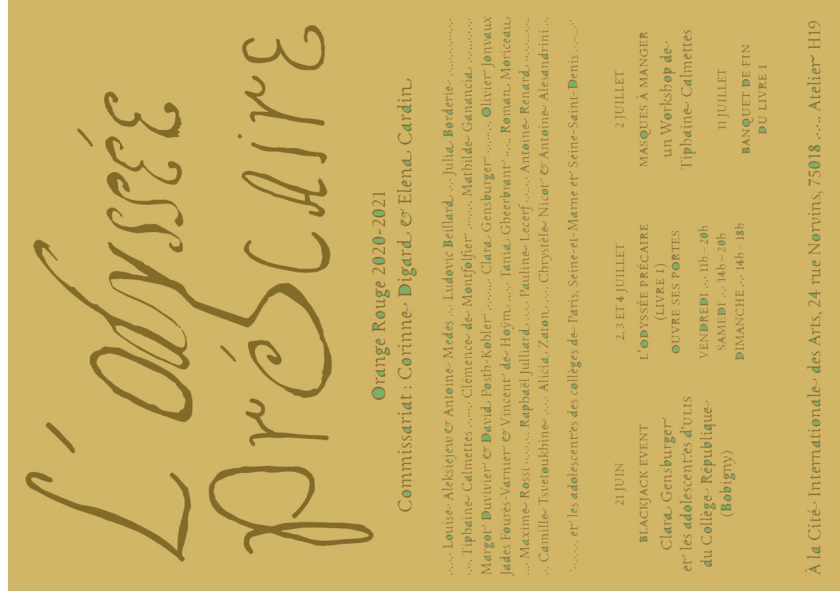 L'Odyssée
prÉScAirE
Orange Rouge 2020-2021
Commissariat : Corinne Digard & Elena Cardin
...... Louise Aleksiejew & Antoine Medes .... Ludovic Beillard .... Julia Borderie ............
..... Tiphaine Calmettes ...... Clémence de Montfolfier ..... Mathilde Ganancia ..........
Margot Duvinier & David Posth-Kohler ....... Clara Gensburger ....... Olivier Jonvaux
Jades Fourès-Varnier & Vincent de Hoÿm ..... Tania Gheerbrant ..... Roman Moriceau
.... Maxime Rossi ....... Raphaël Julliard ..... Pauline Lecerf ..... Antoine Renard ..........
.. Camille Tsvetoukhine .... Alicia Zaton .... Chrystèle Nicot & Antoine Alesandrini ..
....... et les adolescent·es des collèges de Paris, Seine-et-Marne et Seine-Saint-Denis .......
21 JUIN
BLACKJACK EVENT
Clara Gensburger
et les adolescent·es d'ULIS
du Collège République
(Bobigny)
2, 3 ET 4 JUILLET
L'ODYSSÉE PRÉCAIRE
(LIVRE 1)
OUVRE SES PORTES
VENDREDI ... 11h – 20h
SAMEDI ... 14h – 20h
DIMANCHE ... 14h – 18h
2 JUILLET
MASQUES À MANGER
un Workshop de
Tiphaine Calmettes
11 JUILLET
BANQUET DE FIN
DU LIVRE I
À la Cité Internationale des Arts, 24 rue Norvins, 75018 ..... Atelier H19